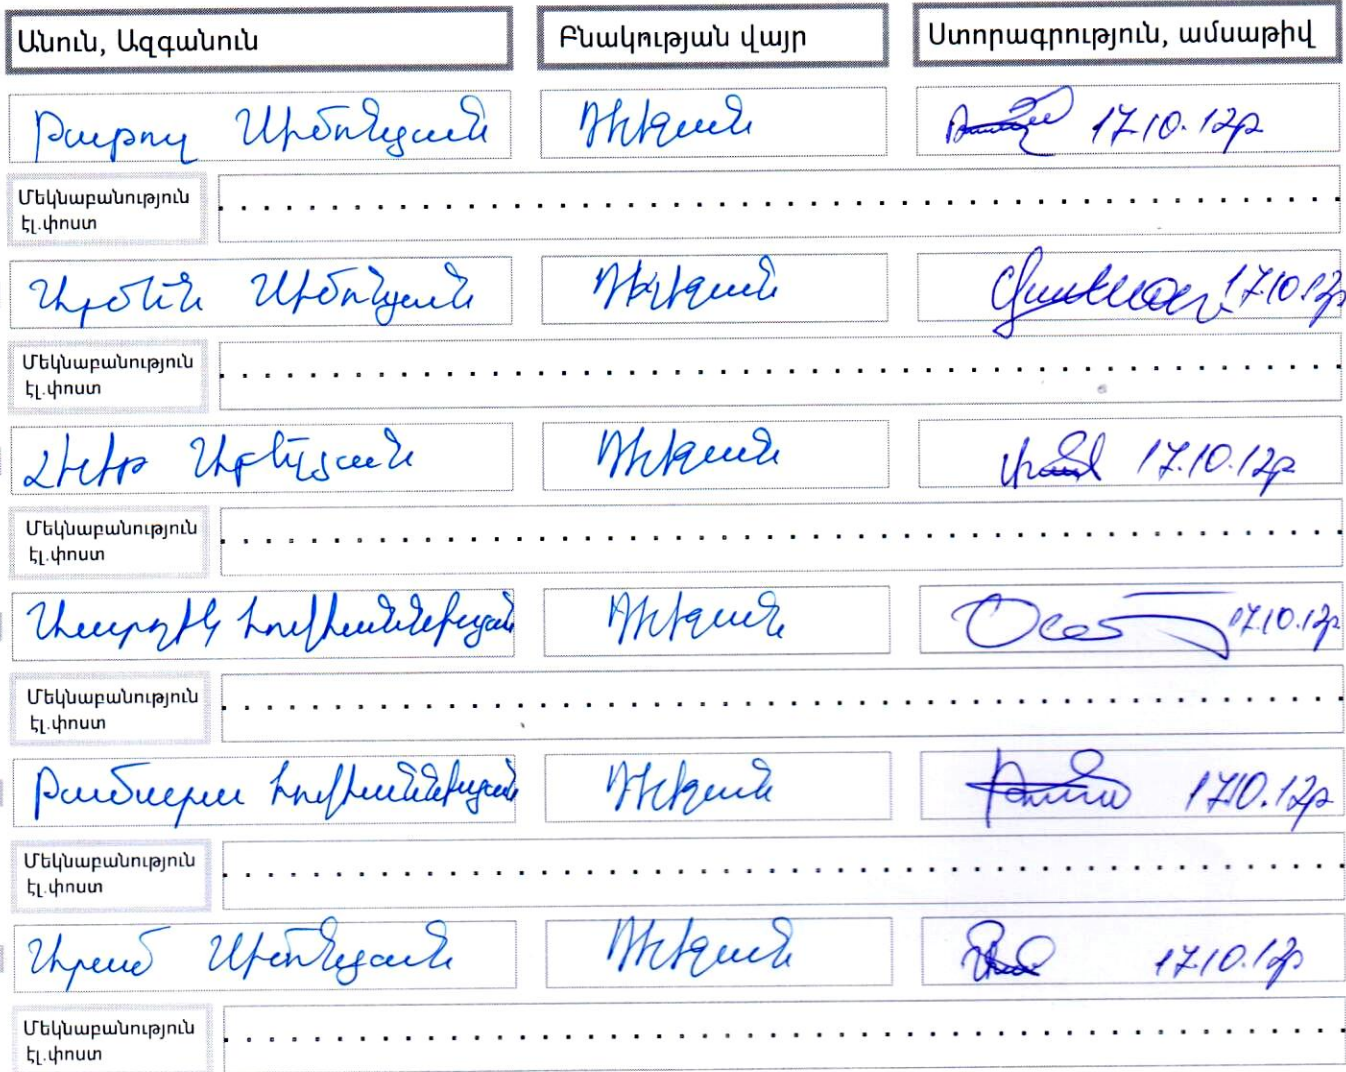 Անուն, Ազգանուն Բնակության վայր Ստորագրություն, ամսաթիվ
Թաթուլ Սիմոնյան Դիլիջան 17.10.12թ
Մեկնաբանություն
էլ.փոստ
Արմեն Սիմոնյան Դիլիջան 17.10.12թ
Մեկնաբանություն
էլ.փոստ
Դիլիջան 17.10.12թ
Մեկնաբանություն
էլ.փոստ
Հովհաննիսյան Դիլիջան 17.10.12թ
Մեկնաբանություն
էլ.փոստ
Թամարա Հովհաննիսյան Դիլիջան 17.10.12թ
Մեկնաբանություն
էլ.փոստ
Արամ Սիմոնյան Դիլիջան 17.10.12թ
Մեկնաբանություն
էլ.փոստ